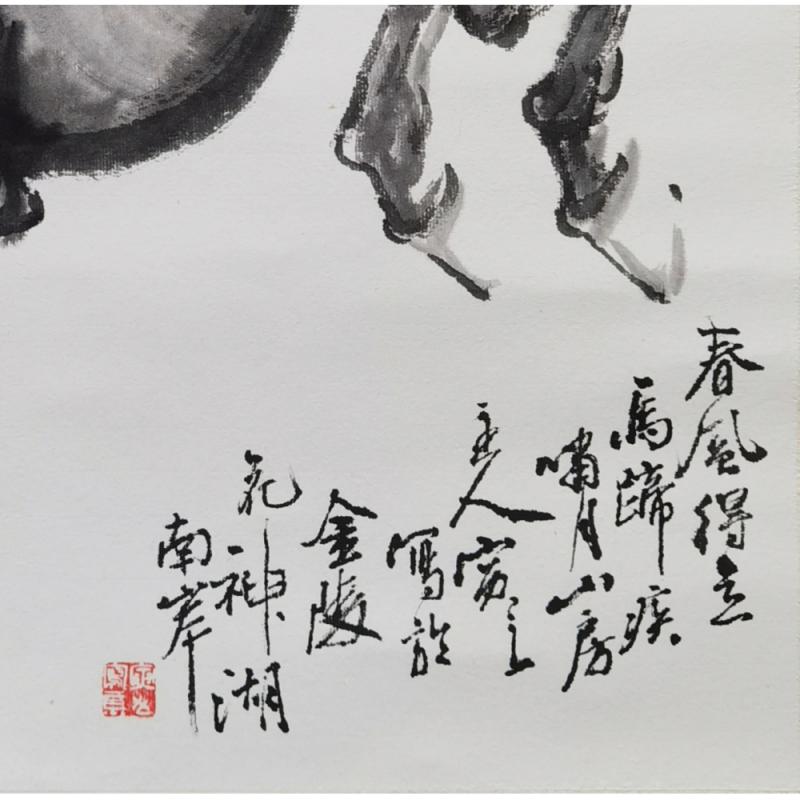 春風得意
馬蹄疾
嘯月山房
主人寅之
寫於
金陵
花神湖
南岸